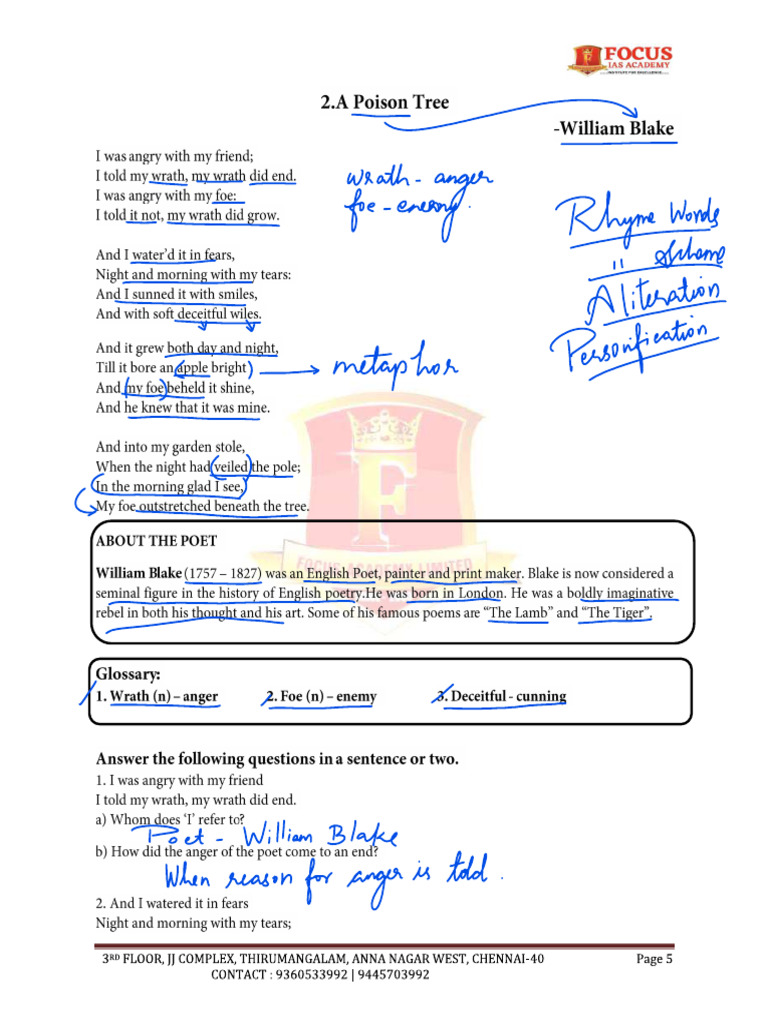 FOCUS
IAS ACADEMY
....INSTITUTE FOR EXCELLENCE....
2.A Poison Tree
-William Blake
I was angry with my friend;
I told my wrath, my wrath did end.
I was angry with my foe:
I told it not, my wrath did grow.
wrath - anger
foe - enemy.
Rhyme Words
" Scheme
Aliteration
Personification
And I water’d it in fears,
Night and morning with my tears:
And I sunned it with smiles,
And with soft deceitful wiles.
And it grew both day and night,
Till it bore an apple bright) metaphor
And my foe beheld it shine,
And he knew that it was mine.
And into my garden stole,
When the night had veiled the pole;
In the morning glad I see,
My foe outstretched beneath the tree.
F
FOCUS ACADEMY LIMITED
ABOUT THE POET
William Blake (1757 – 1827) was an English Poet, painter and print maker. Blake is now considered a
seminal figure in the history of English poetry.He was born in London. He was a boldly imaginative
rebel in both his thought and his art. Some of his famous poems are “The Lamb” and “The Tiger”.
Glossary:
1. Wrath (n) – anger 2. Foe (n) – enemy 3. Deceitful - cunning
Answer the following questions in a sentence or two.
1. I was angry with my friend
I told my wrath, my wrath did end.
a) Whom does ‘I’ refer to?
Poet - William Blake
b) How did the anger of the poet come to an end?
When reason for anger is told.
2. And I watered it in fears
Night and morning with my tears;
3RD FLOOR, JJ COMPLEX, THIRUMANGALAM, ANNA NAGAR WEST, CHENNAI-40 Page 5
CONTACT : 9360533992 | 9445703992